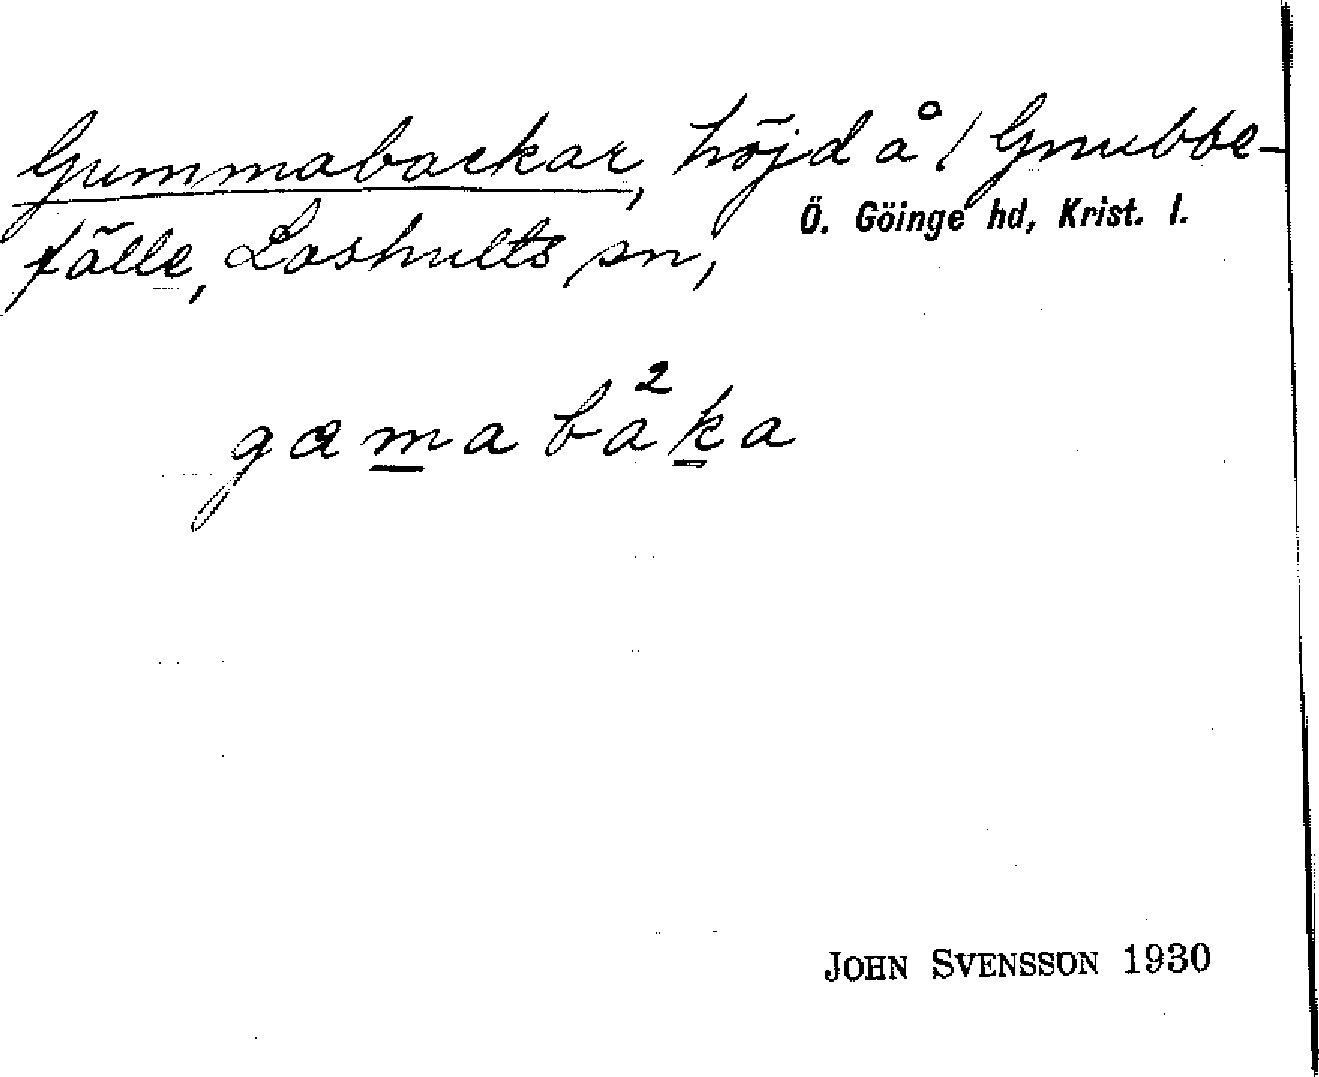 Gummabackar, höjd å / Gnubbe-
fälle, Loshults sn, Ö. Göinge hd, Krist. l.
gamabå²ka
JOHN SVENSSON 1930